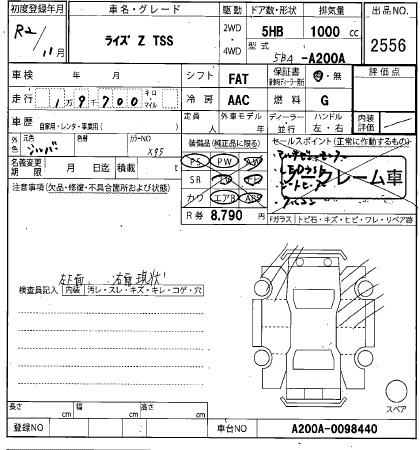 初度登録年月 車名・グレード 駆動 ドア数・形状 排気量 出品NO.
R2/11月 ライズ Z TSS 2WD・4WD 5HB 1000 cc 2556
型式 5BA -A200A
車検 年 月 シフト FAT 保証書 有・無 評価点
走行 1万9千700 キロ マイル 冷房 AAC 燃料 G
車歴 自家用・レンタ・事業用( ) 定員 人 外車モデル 年 ディーラー 並行 ハンドル 左・右 内装評価
外色 元色 シルバー 色替 カラーNO X95
装備品(純正品に限る) セールスポイント(正常に作動するもの)
PS PW AW
名義変更期限 月 日迄 積載 t SR TV ノークレーム車
注意事項(欠品・修復・不具合箇所および状態) カワ エアB ABS
R券 8,790 円 Fガラス トビ石・キズ・ヒビ・ワレ・リペア跡
左面、右面現状
検査員記入 内装 汚レ・スレ・キズ・キレ・コゲ・穴
スペア
長さ cm 幅 cm 高さ cm
登録NO 車台NO A200A-0098440